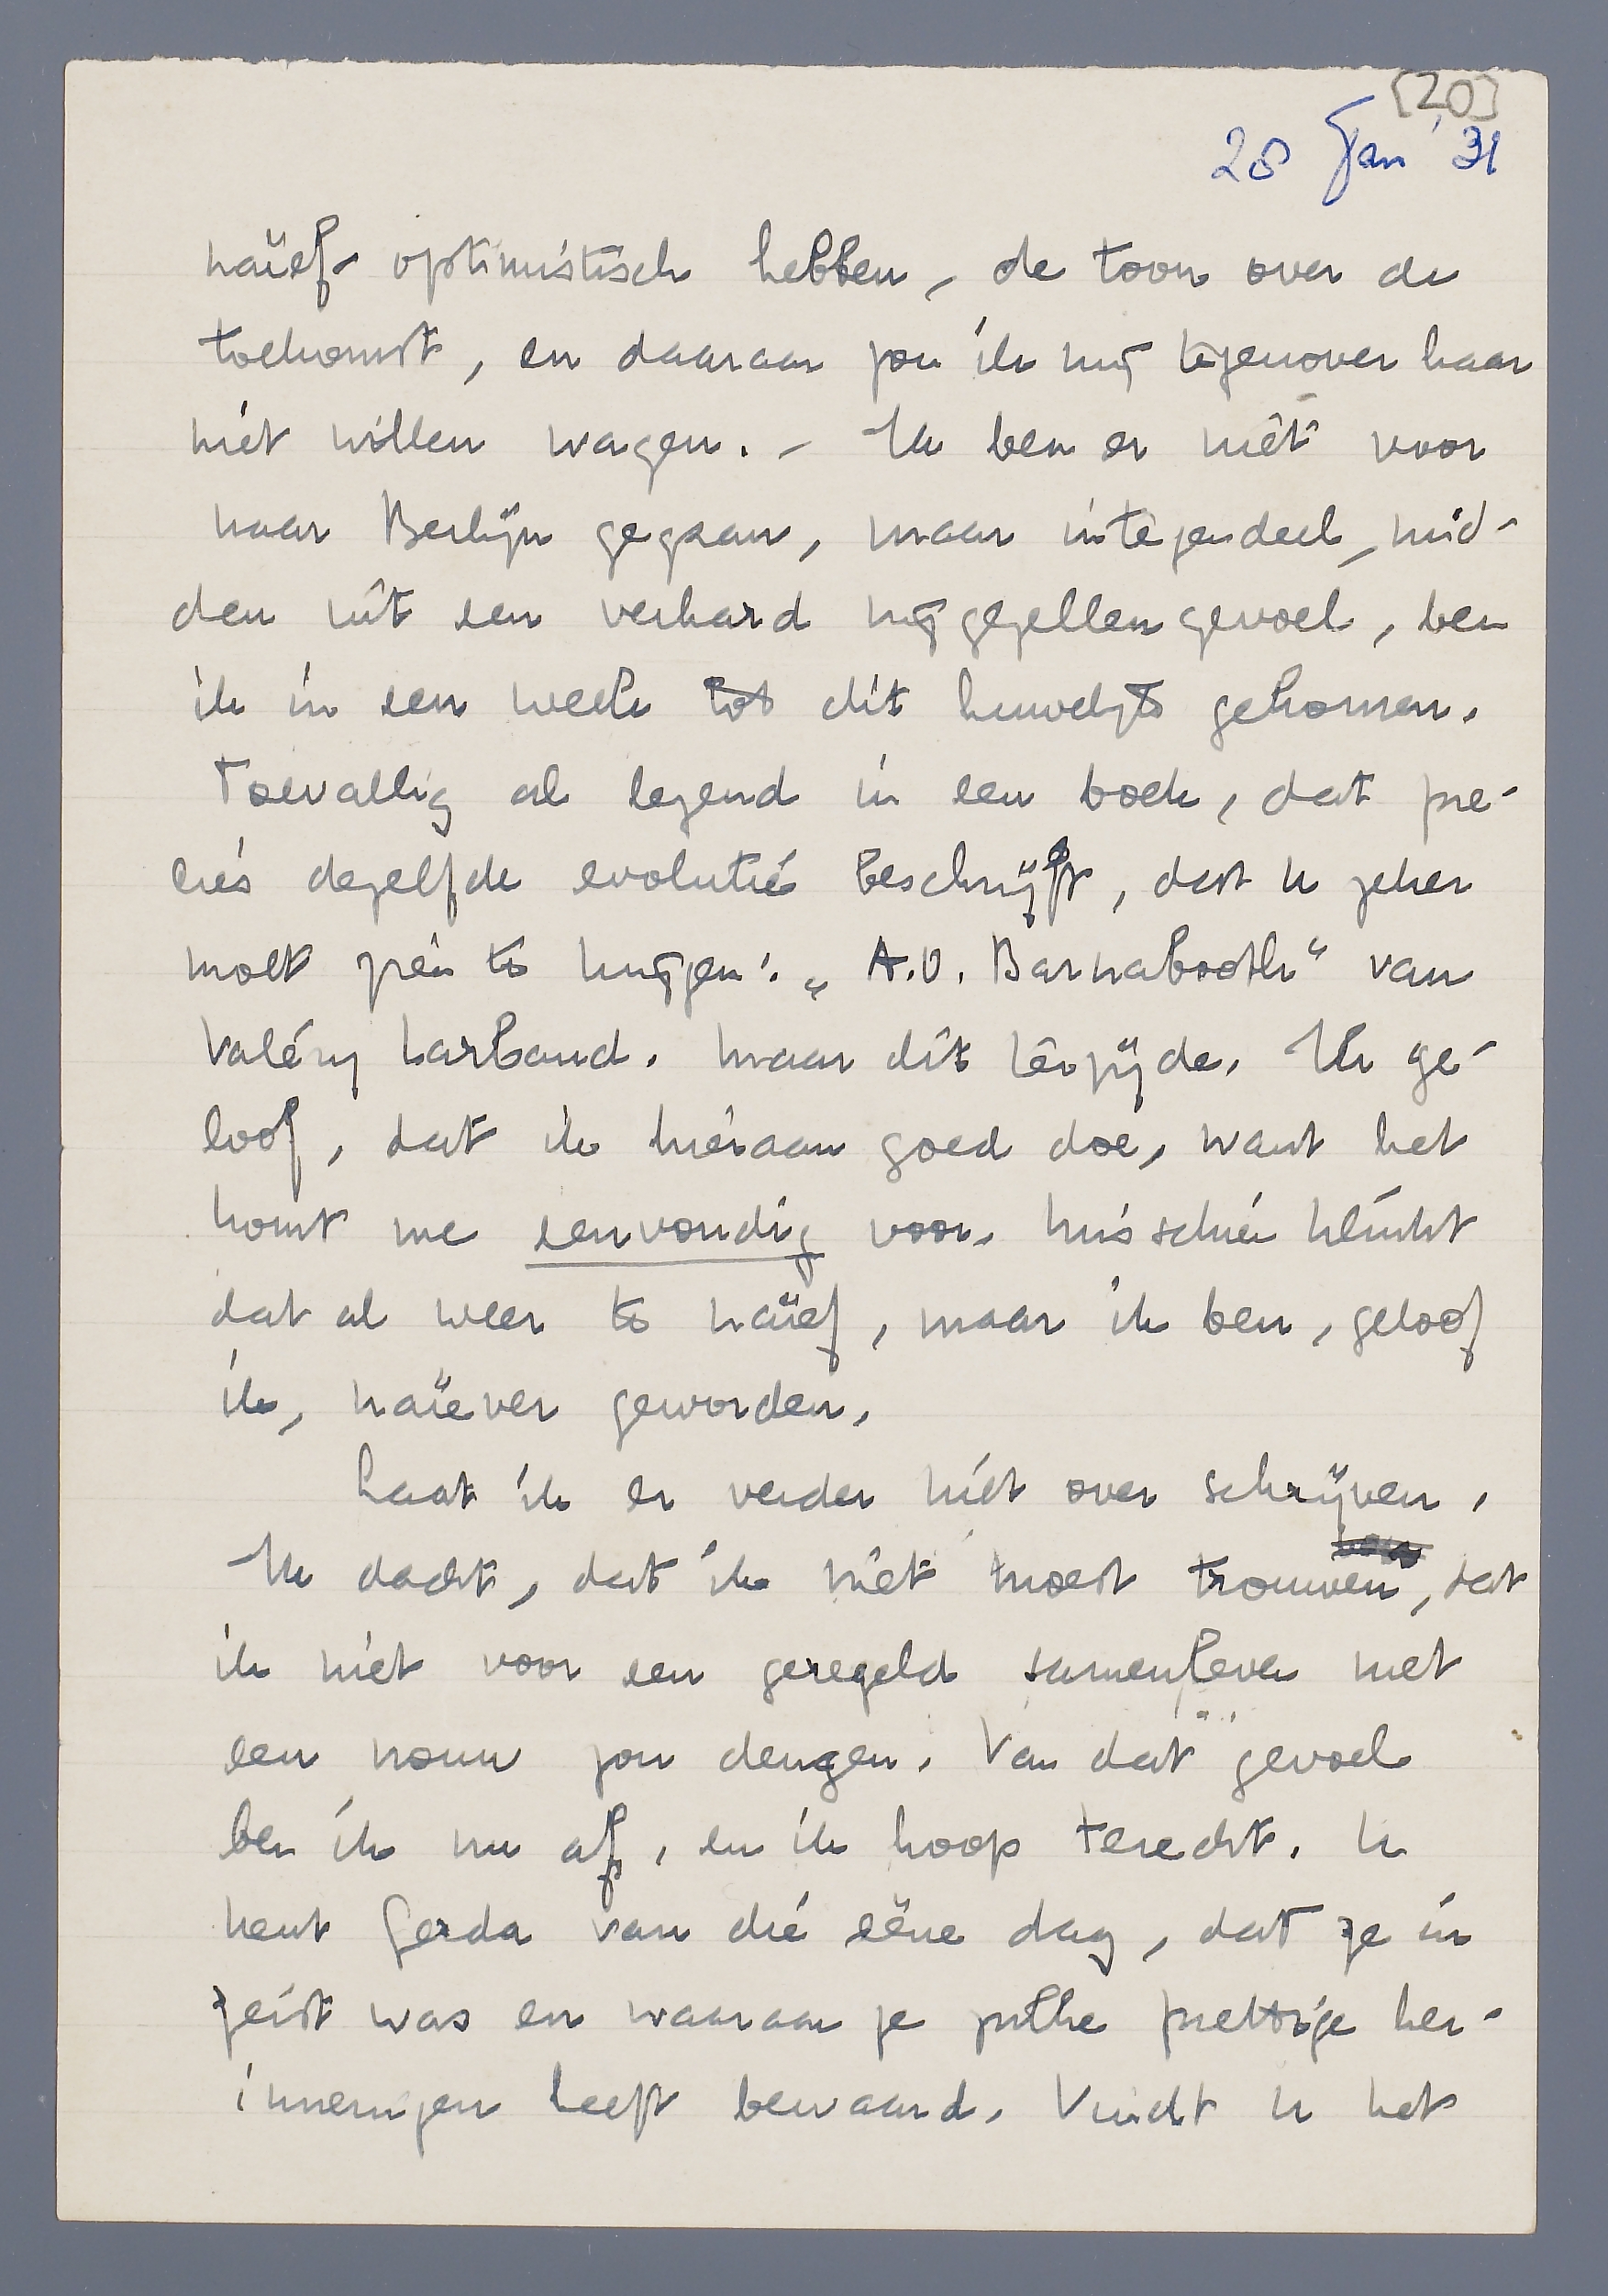 [20]
28 Jan '31
naïef-optimistisch hebben, de toon over de
toekomst, en daaraan zou ik mij tegenover haar
niet willen wagen. – Ik ben er niet voor
naar Berlijn gegaan, maar integendeel, mid-
den uit een verhard vrijgezellengevoel, ben
ik in een week tot dit huwelijk gekomen.
Toevallig al lezend in een boek, dat pre-
cies dezelfde evolutie beschrijft, dat U zeker
moet zien te krijgen: „A.O. Barnabooth" van
Valéry Larbaud. Maar dit terzijde. Ik ge-
loof, dat ik hieraan goed doe, want het
komt me eenvoudig voor. Misschien klinkt
dat al weer te naïef, maar ik ben, geloof
ik, naïever geworden.
Laat ik er verder niet over schrijven.
Ik dacht, dat ik niet moest trouwen, dat
ik niet voor een geregeld samenleven met
een vrouw zou deugen. Van dat gevoel
ben ik nu af, en ik hoop terecht. U
kent Gerda van die ééne dag, dat ze in
Zeist was en waaraan ze zulke prettige her-
inneringen heeft bewaard. Vindt U het